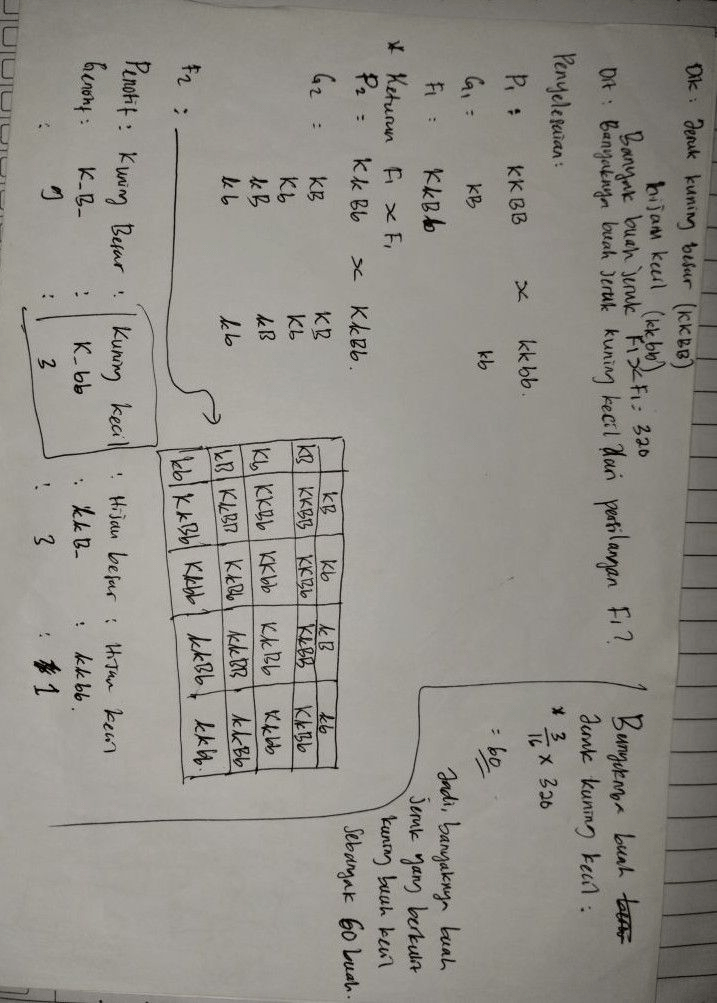 Dik : Jeruk kuning besar (KKBB)
hijau kecil (kkbb)
Banyak buah jeruk F1 x F1 = 320
Dit : Banyaknya buah jeruk kuning kecil dari persilangan F1?
Penyelesaian :
P1 : KKBB x kkbb.
G1 = KB kb
F1 : KkBb
* Keturun F1 x F1
P2 = KkBb x KkBb.
G2 = KB KB
Kb Kb
kB kB
kb kb
F2 :
KB Kb kB kb
KB KKBB KKBb KkBB KkBb
Kb KKBb KKbb KkBb Kkbb
kB KkBB KkBb kkBB kkBb
kb KkBb Kkbb kkBb kkbb.
Penotif : Kuning Besar : Kuning kecil : Hijau besar : Hijau kecil
Genotif : K_B_ : K_bb : kkB_ : kkbb.
: 9 : 3 : 3 : 1
Banyaknya buah
Jeruk kuning kecil :
* 3/16 x 320
= 60
Jadi, banyaknya buah
jeruk yang berkulit
kuning buah kecil
sebanyak 60 buah.